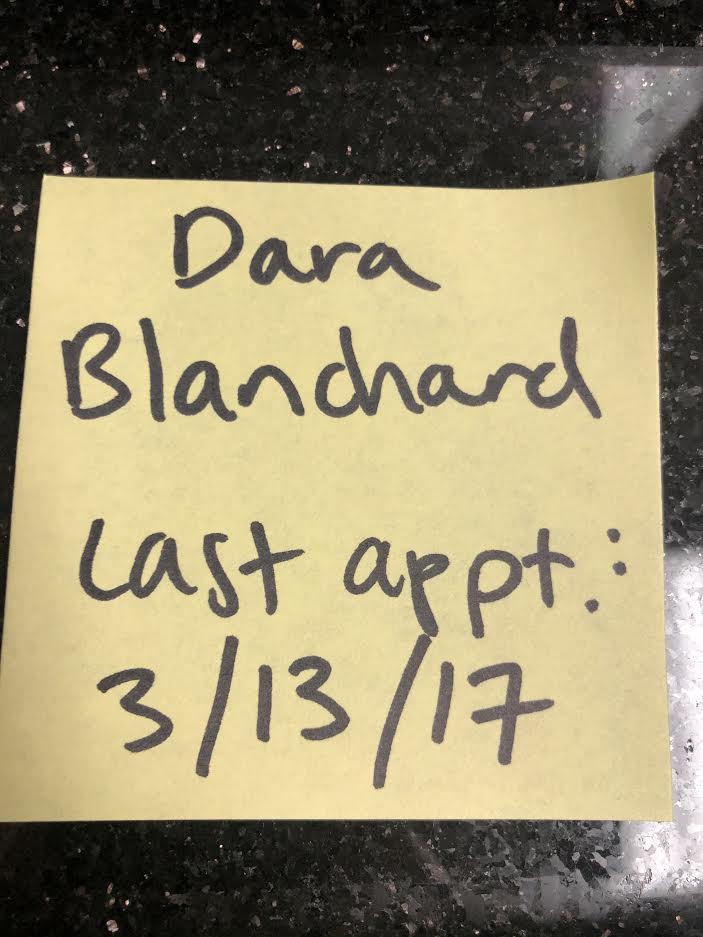 Dara
Blanchard
Last appt.:
3/13/17